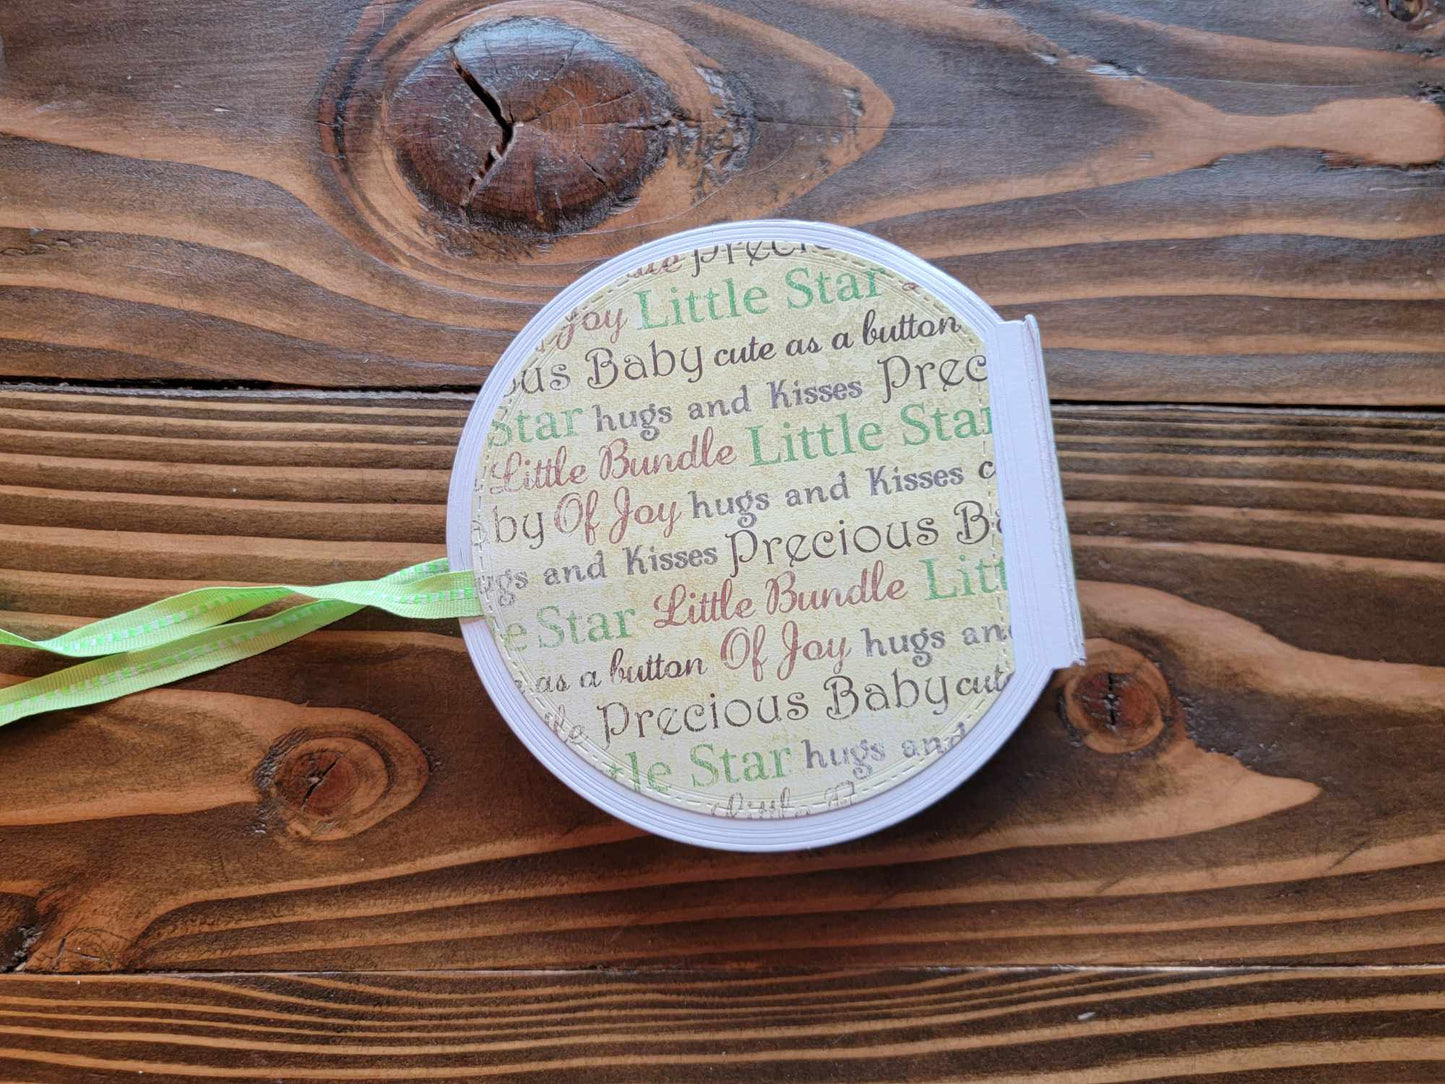 Joy Little Star
Baby cute as a button
Star hugs and Kisses Prec
Little Bundle Little Star
by Of Joy hugs and Kisses c
gs and Kisses Precious Ba
e Star Little Bundle Litt
as a button Of Joy hugs an
Precious Baby cut
tle Star hugs and